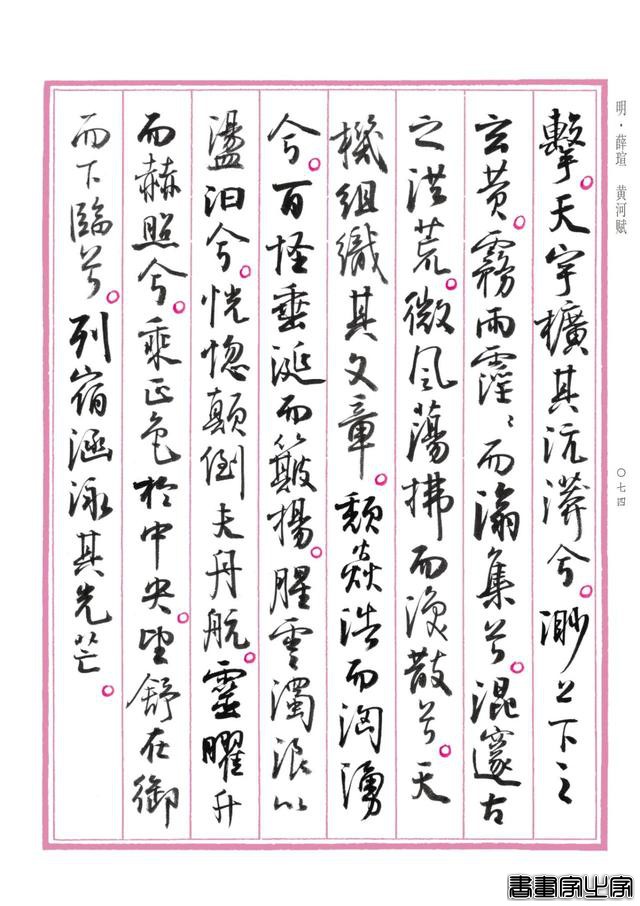 明·薛瑄　黄河赋
〇七四
擊。天宇擴其沆漭兮。渺上下之
玄黄。霧雨霪〻而瀹集兮。混邃古
之洪荒。微風蕩拂而渙散兮。天
機組織其文章。頹焱浩而洶湧
兮。百怪垂涎而簸揚。腥雲濁浪以
盪汩兮。恍惚顛倒夫舟航。靈曜升
而赫照兮。乘正色於中央。望舒在御
而下臨兮。列宿涵泳其光芒。
書畫家出字